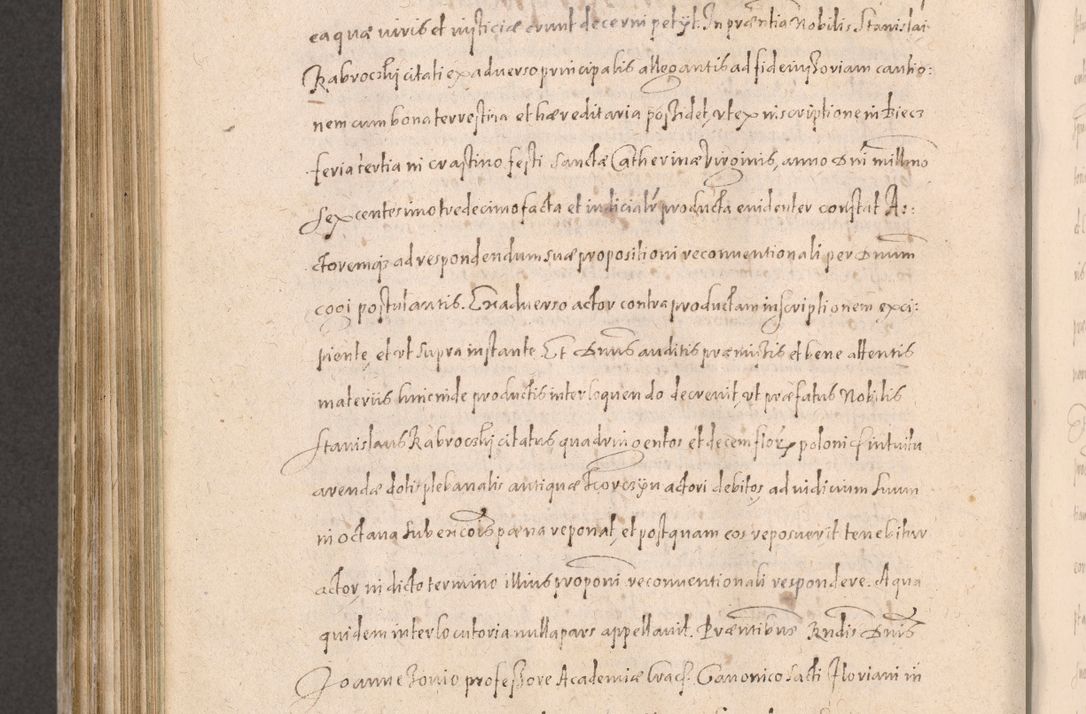 ea quæ iuris et iusticiæ erunt decerni petÿt. In præntia Nobilis Stanislai
Kabroczkij citati ex aduerso principalis allegantis ad fideiussoriam cautio:
nem cum bona terrestria et hæreditaria possidet, vt ex inscriptione in Biecz
feria tertia in crastino festi Sanctæ Catherinæ Virginis, anno Dni millmo
Sexcentesimo tredecimo facta et iudicialr producta euidenter constat A:
ctoremqz ad respondendum suæ propositioni reconuentionali per Dnum
cogi postulantis. Ex aduerso actor contra productam inscriptionem exci:
piente, et vt supra instante. Et Dnus auditis præmissis et bene attentis
materiis hincinde productis interloquendo decreuit, vt præfatus Nobilis
Stanislaus Kabroczkij citatus quadringentos et decem flor polonical intuitu
arendæ dotis plebanalis antiquæ Gorczÿn actori debitos, ad iudicium suum
in octaua sub encois pæna reponat, et postquam eos reposuerit tenebitur
actor, in dicto termino illius proponi reconuentionali respondere. A qua
quidem interlocutoria nulla pars appellauit. Præntibus Rndis Dnis
Joanne Zonio professore Academiæ Cracs. Canonico Scti Floriani in